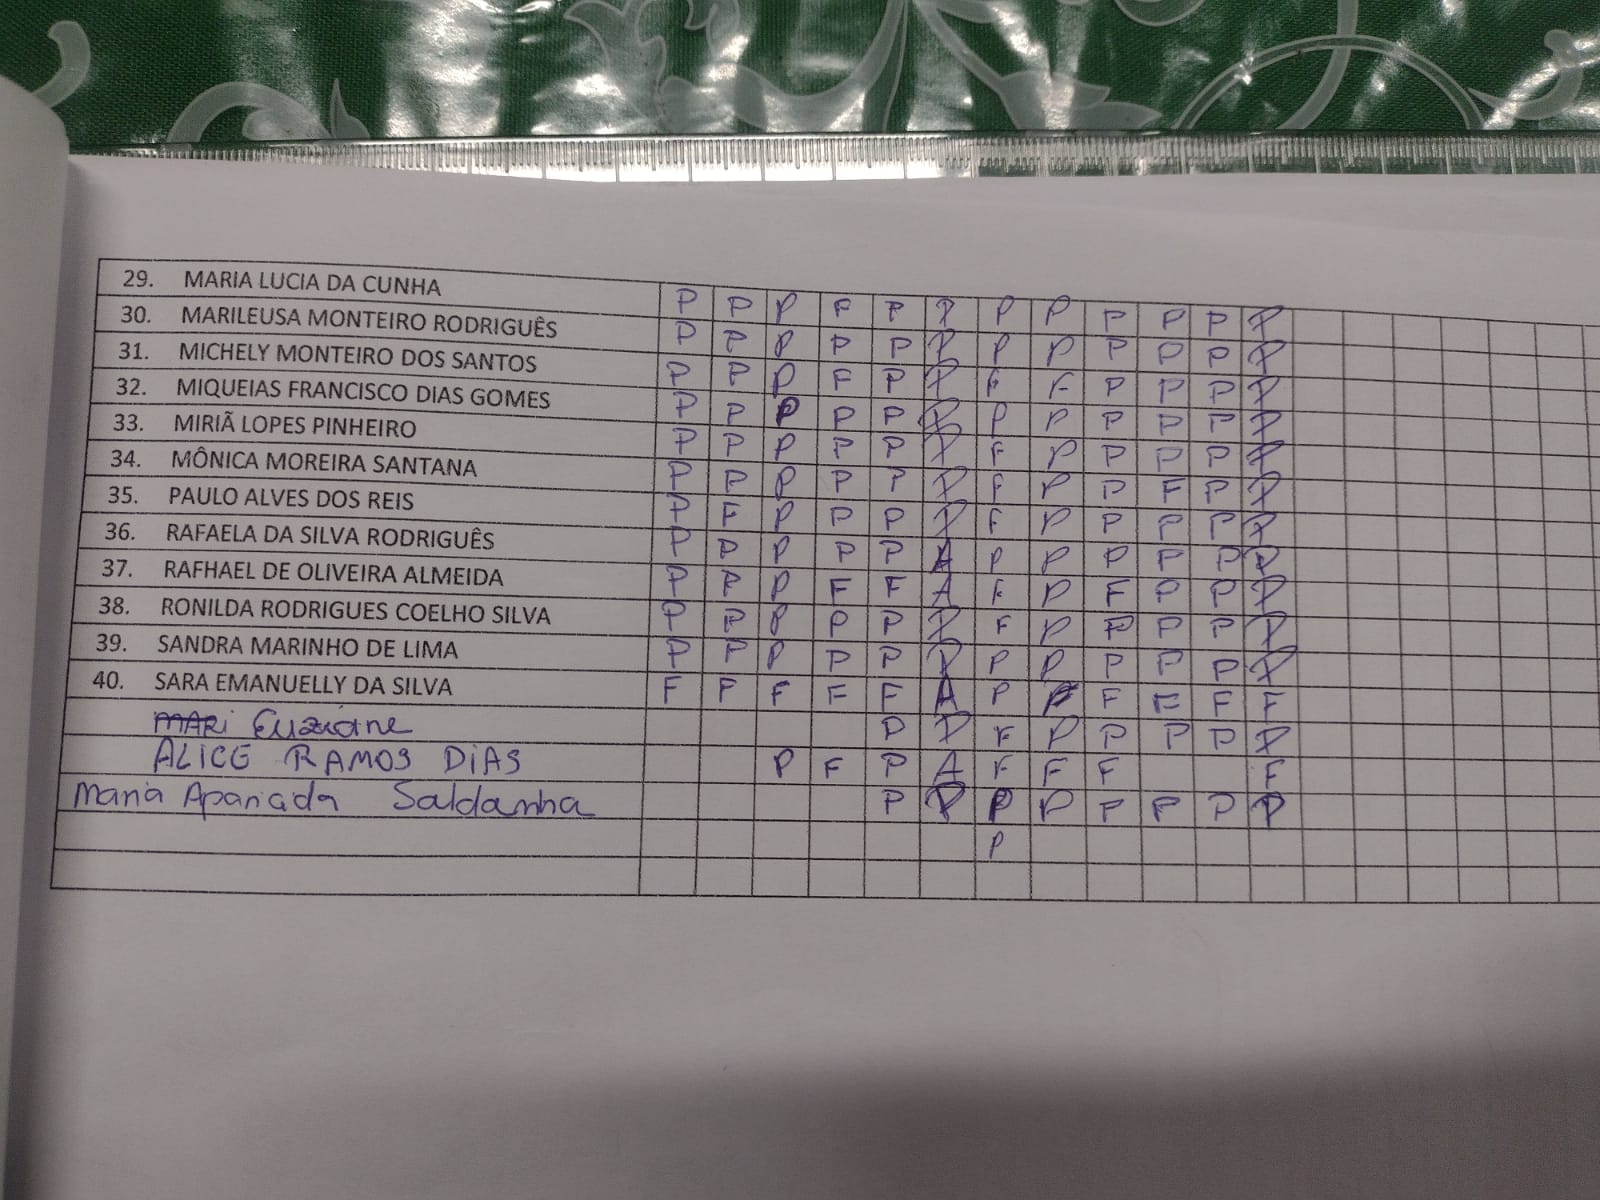 29. MARIA LUCIA DA CUNHA P P P F F P P P P P P P
30. MARILEUSA MONTEIRO RODRIGUÊS P P P P P P P P P P P P
31. MICHELY MONTEIRO DOS SANTOS P P P F P P F F P P P P
32. MIQUEIAS FRANCISCO DIAS GOMES P P P P P P P P P P P P
33. MIRIÃ LOPES PINHEIRO P P P P P P F P P P P P
34. MÔNICA MOREIRA SANTANA P P P P P P F P P F P P
35. PAULO ALVES DOS REIS P F P P P P F P P P P P
36. RAFAELA DA SILVA RODRIGUÊS P P P P P A P P P P P P
37. RAFHAEL DE OLIVEIRA ALMEIDA P P P F F A F P F P P P
38. RONILDA RODRIGUES COELHO SILVA P P P P P P F P P P P P
39. SANDRA MARINHO DE LIMA P P P P P P P P P P P P
40. SARA EMANUELLY DA SILVA F F F F F A P P F F F F
P P F P P P P P
ALICE RAMOS DIAS P F P A F F F F
Maria Aparicida Saldanha P P P P P F P P
P